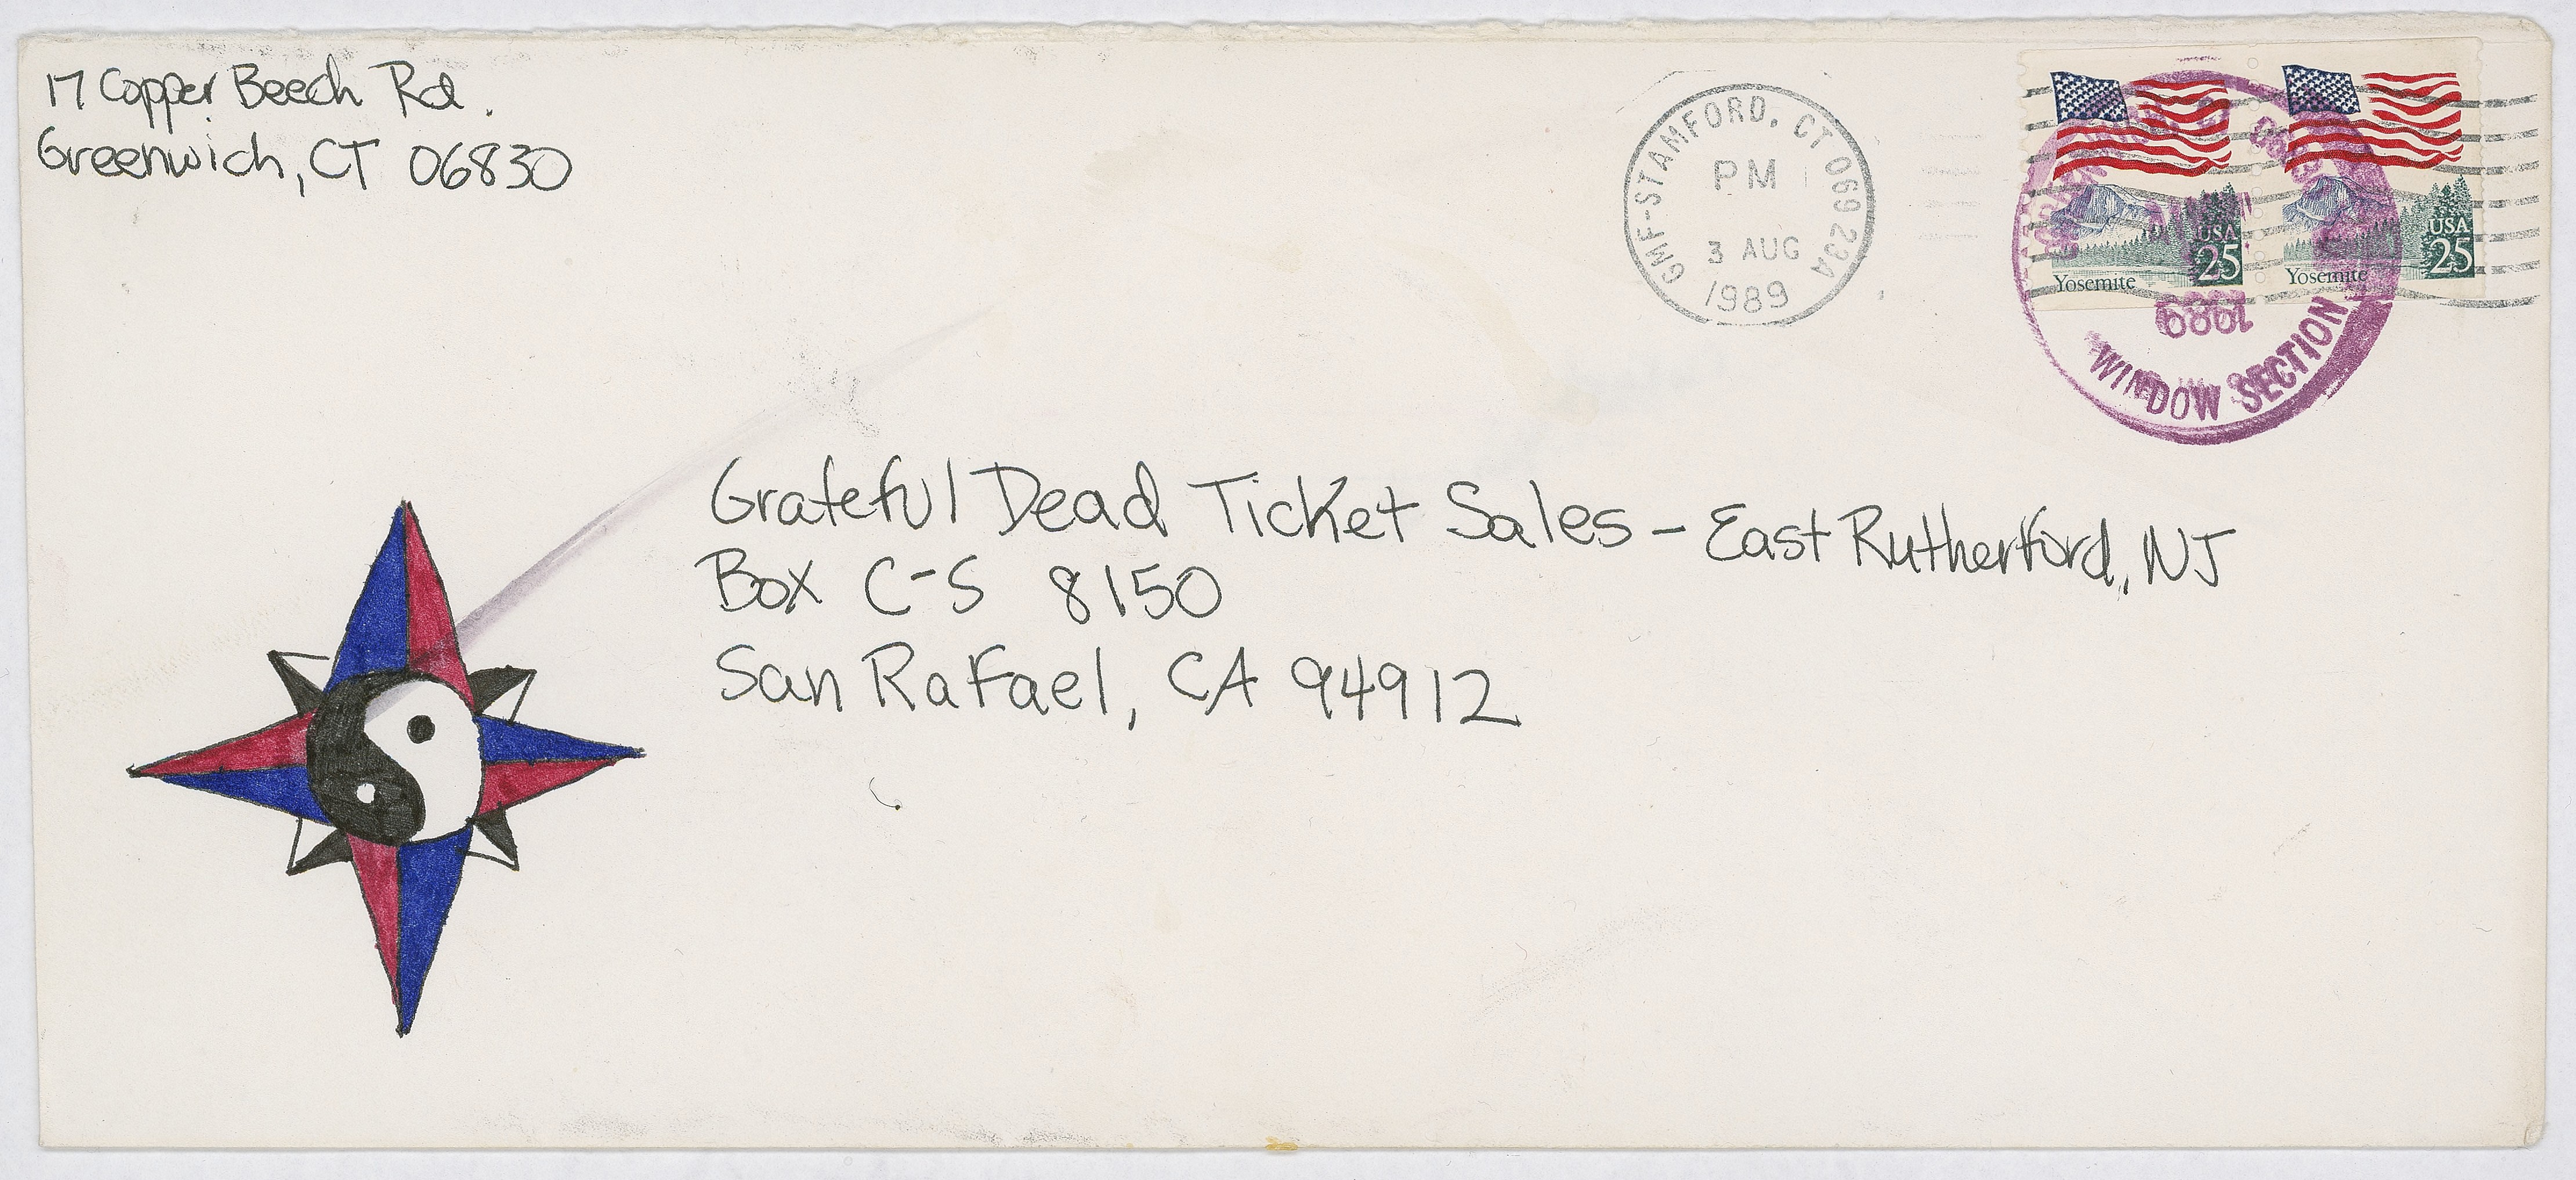 17 Copper Beech Rd.
Greenwich, CT 06830
GMF-STAMFORD, CT 069 23A
PM
3 AUG
1989
USA
25
Yosemite
USA
25
Yosemite
1989
WINDOW SECTION
Grateful Dead Ticket Sales - East Rutherford, NJ
Box C-S 8150
San Rafael, CA 94912